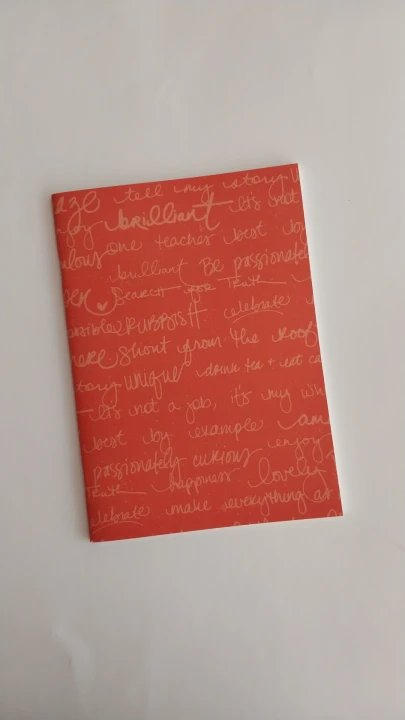 tell my story
brilliant it's not
one teaches best by
brilliant Be passionate
SEARCH FOR Truth
possible PURPOSE celebrate
shout from the roof
story unique drink tea + eat ca
it's not a job, it's my wh
best by example am
passionately curious enjoy
Truth happiness lovely
celebrate make everything as